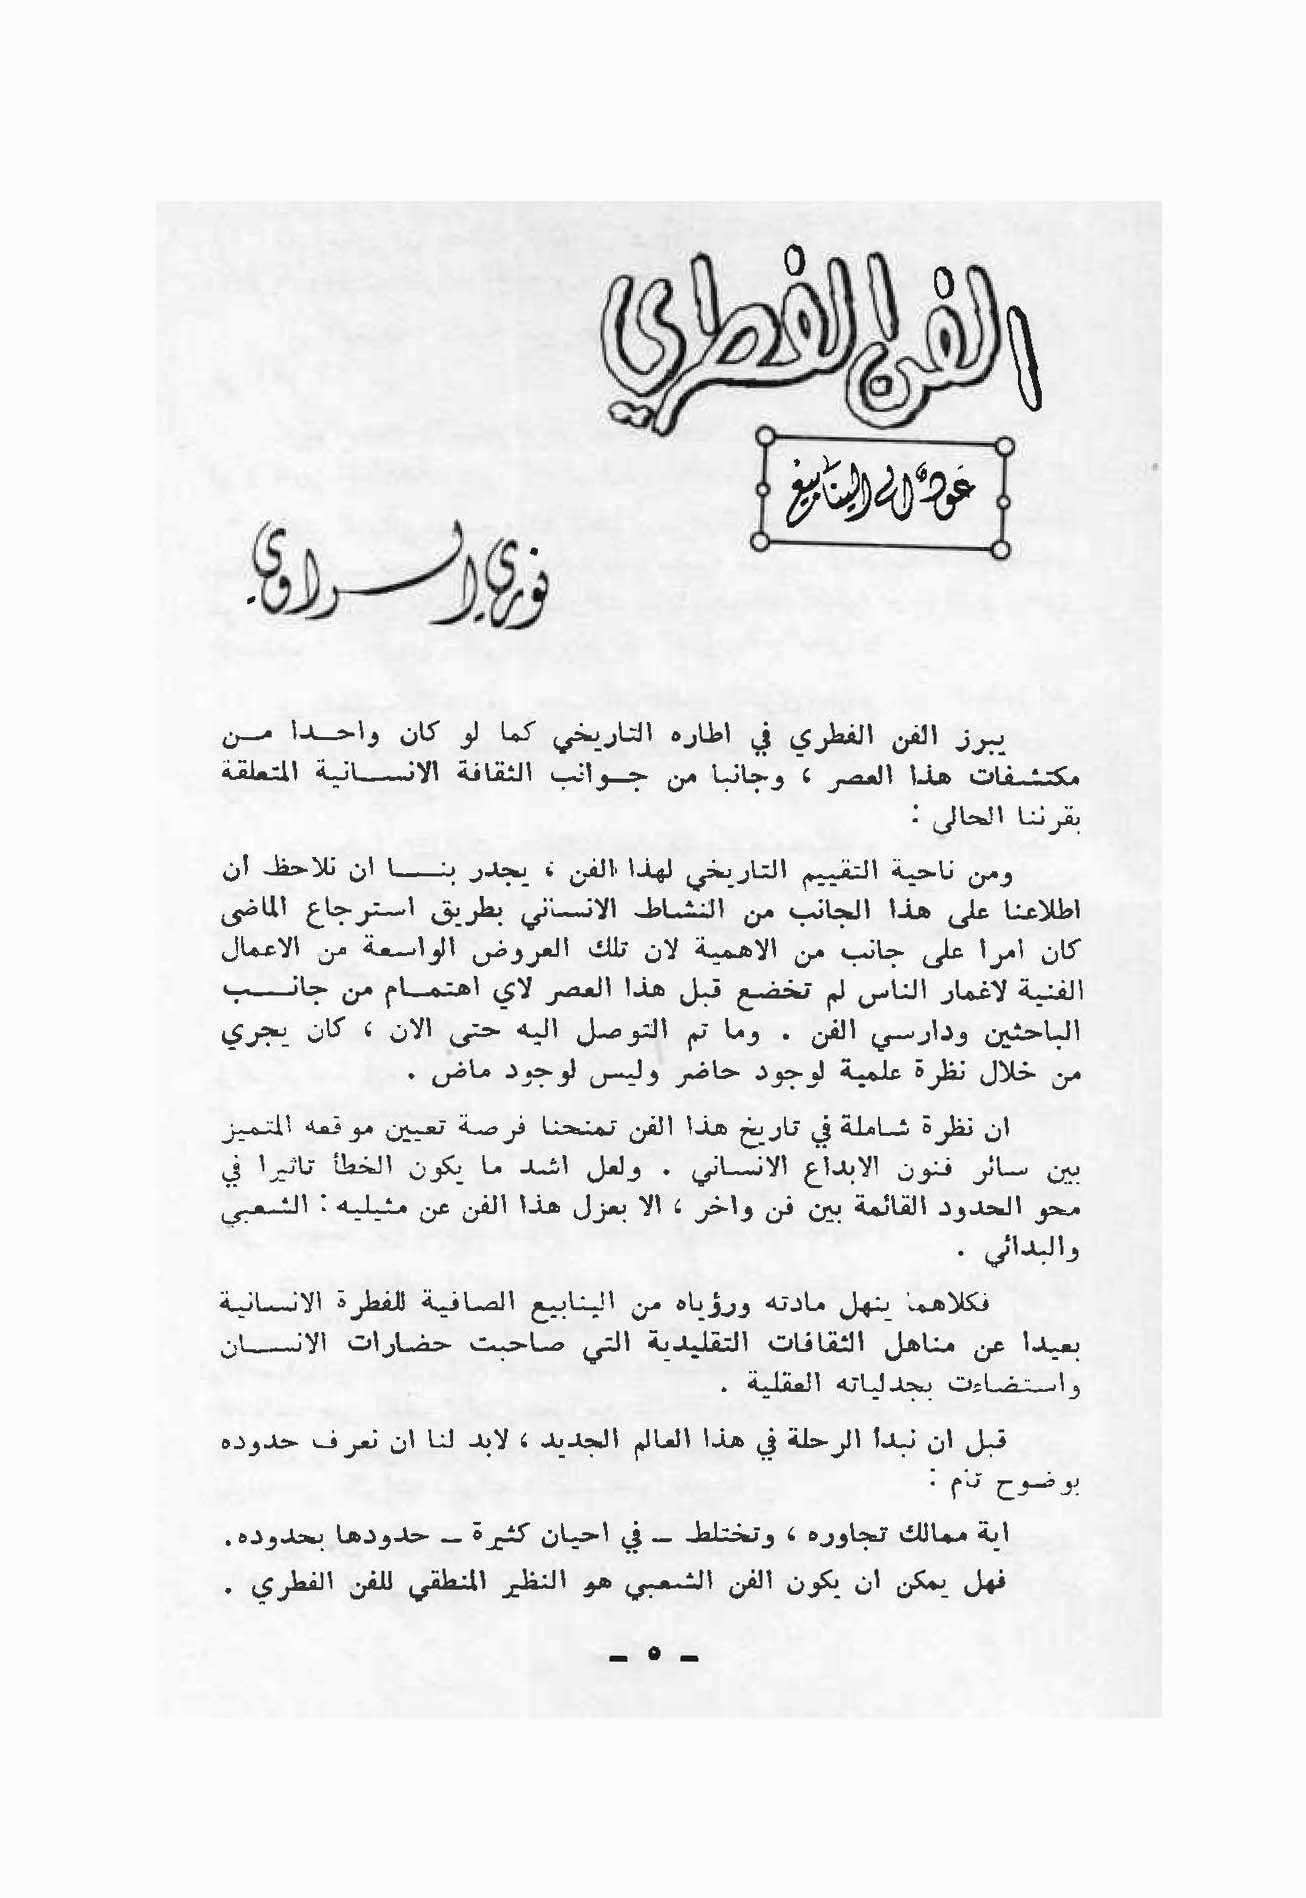 الفن الفطري
عودٌ الى الينابيع
نوري الراوي
يبرز الفن الفطري في اطاره التاريخي كما لو كان واحدا من
مكتشفات هذا العصر ، وجانبا من جوانب الثقافة الانسانية المتعلقة
بقرننا الحالي :
ومن ناحية التقييم التاريخي لهذا الفن ، يجدر بنا ان نلاحظ ان
اطلاعنا على هذا الجانب من النشاط الانساني بطريق استرجاع الماضي
كان امرا على جانب من الاهمية لان تلك العروض الواسعة من الاعمال
الفنية لاغمار الناس لم تخضع قبل هذا العصر لاي اهتمام من جانب
الباحثين ودارسي الفن . وما تم التوصل اليه حتى الان ، كان يجري
من خلال نظرة علمية لوجود حاضر وليس لوجود ماض .
ان نظرة شاملة في تاريخ هذا الفن تمنحنا فرصة تعيين موقعه المتميز
بين سائر فنون الابداع الانساني . ولعل اشد ما يكون الخطأ تاثيرا في
محو الحدود القائمة بين فن واخر ، الا بعزل هذا الفن عن مثيليه : الشعبي
والبدائي .
فكلاهما ينهل مادته ورؤياه من الينابيع الصافية للفطرة الانسانية
بعيدا عن مناهل الثقافات التقليدية التي صاحبت حضارات الانسان
واستضاءت بجدلياته العقلية .
قبل ان نبدأ الرحلة في هذا العالم الجديد ، لابد لنا ان نعرف حدوده
بوضوح تام :
اية ممالك تجاوره ، وتختلط – في احيان كثيرة – حدودها بحدوده.
فهل يمكن ان يكون الفن الشعبي هو النظير المنطقي للفن الفطري .
– ٥ –